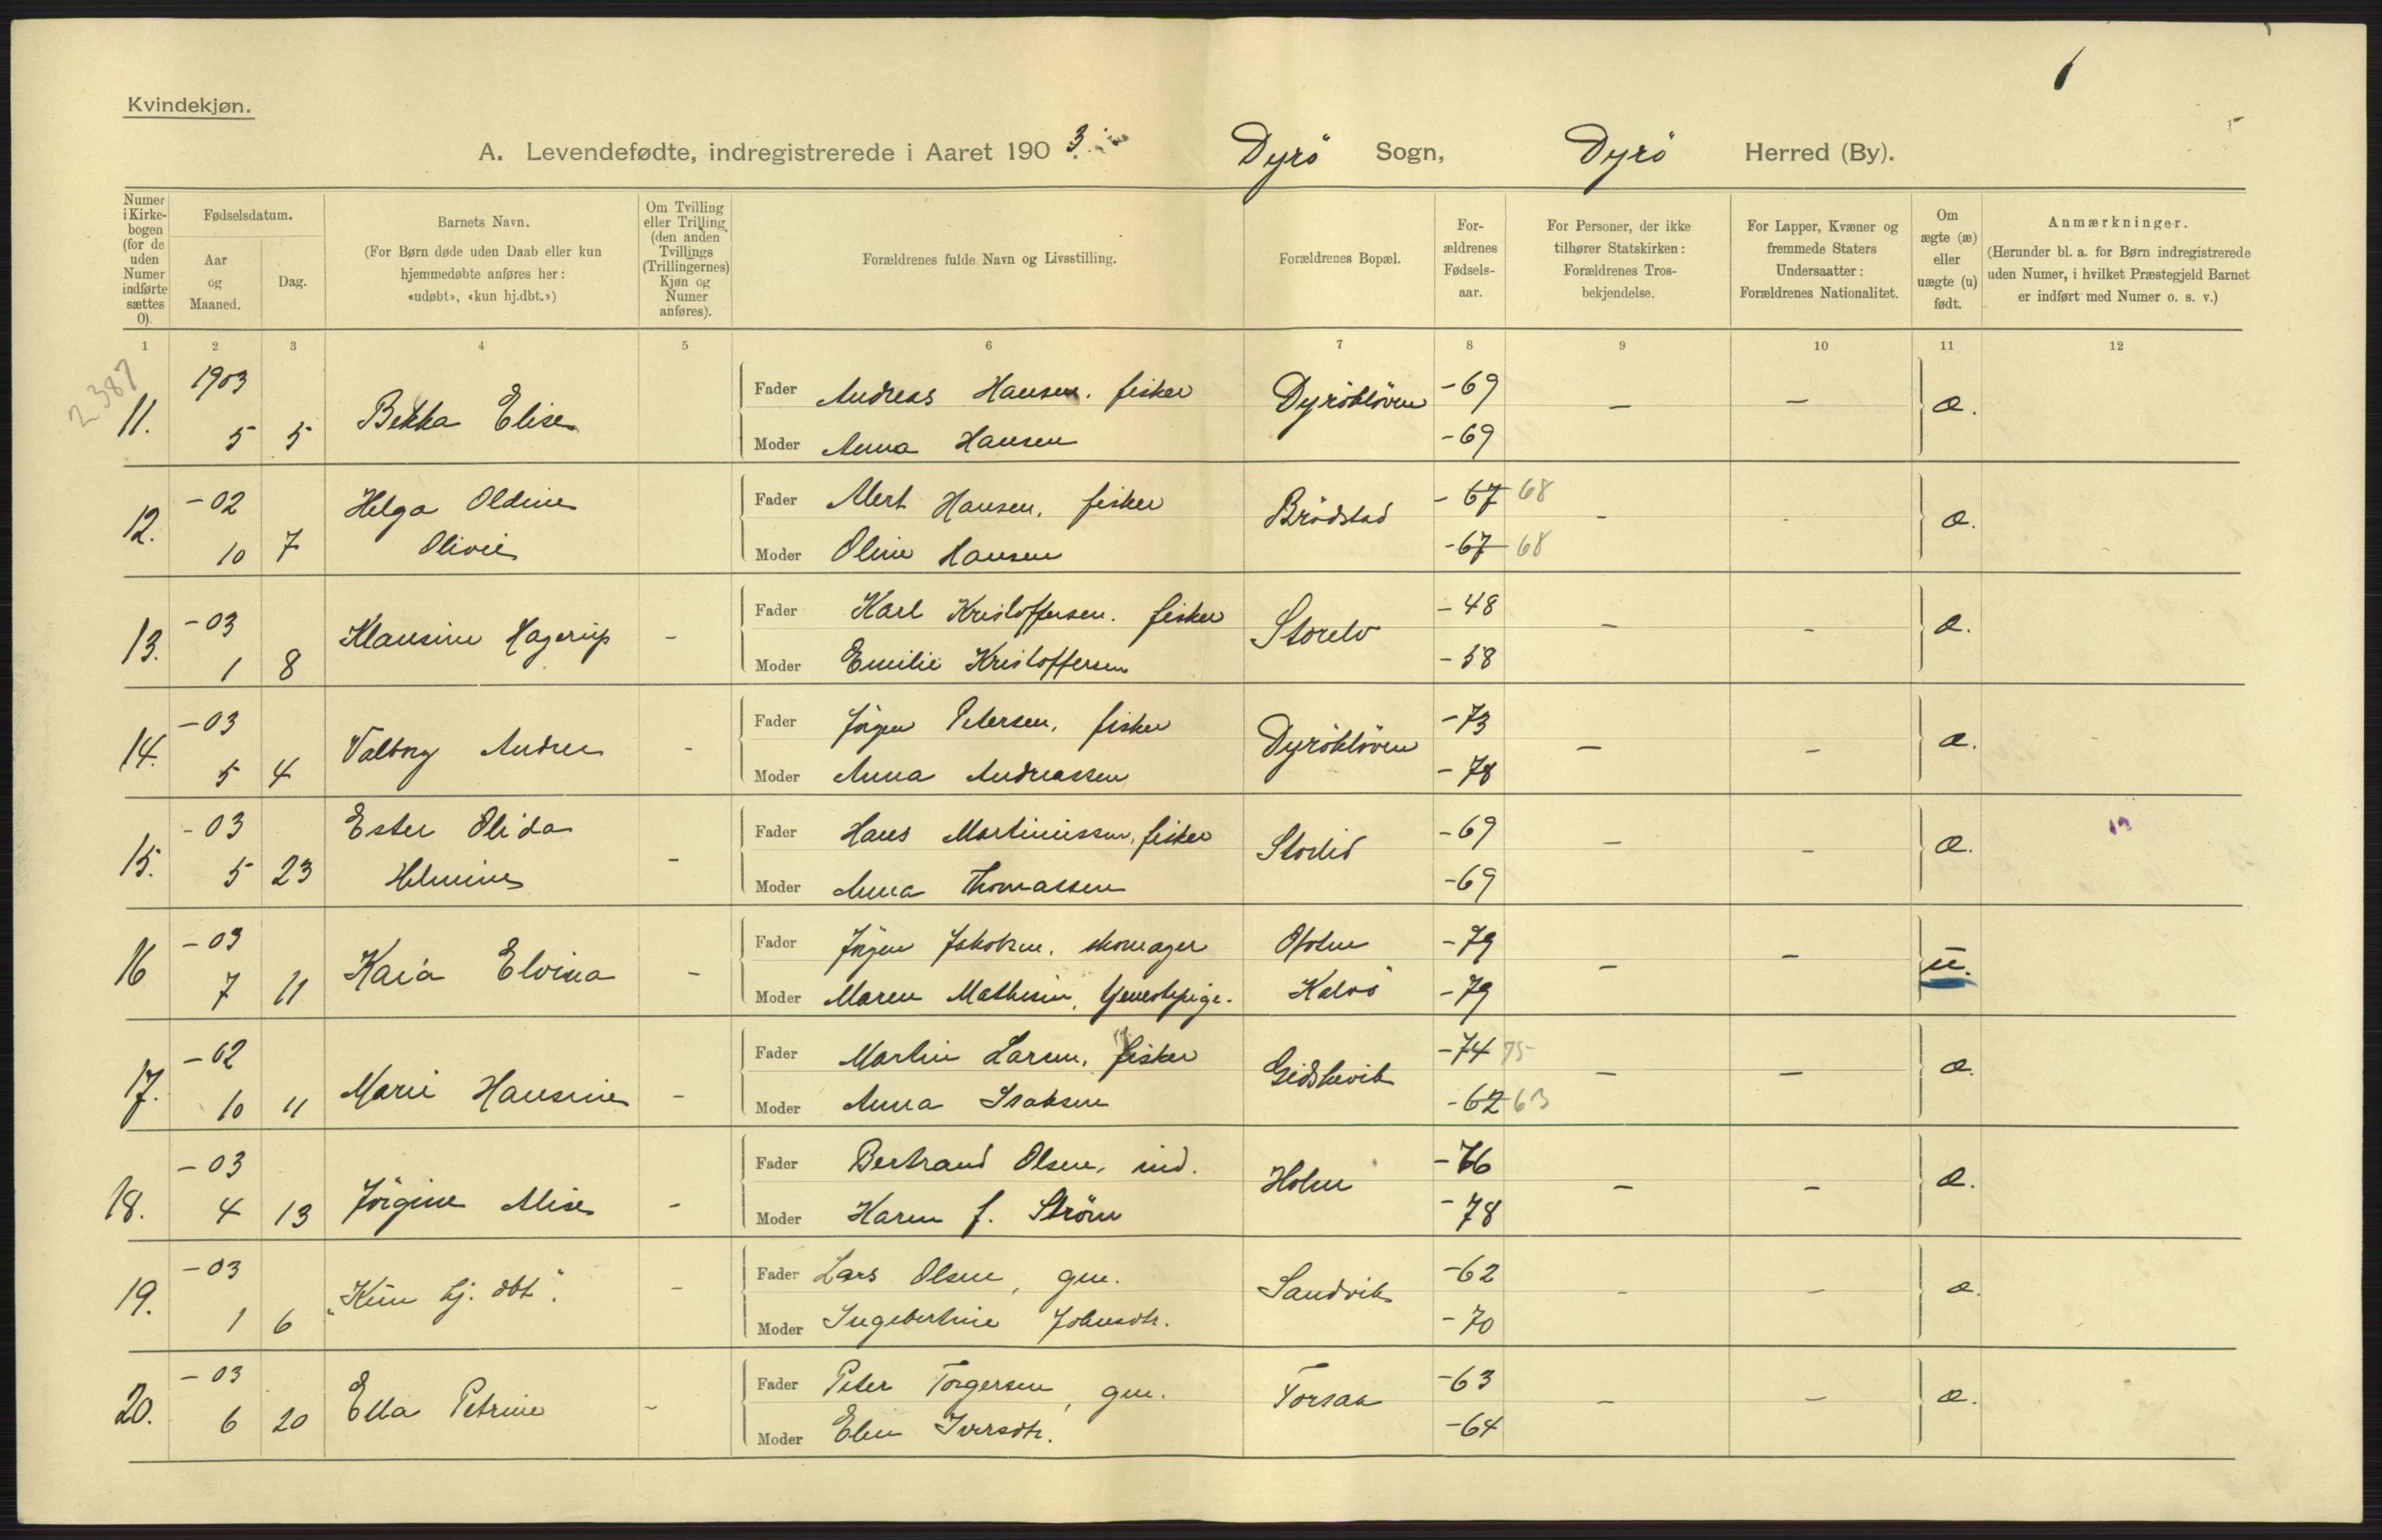 Kvindekjøn.
A. Levendefødte, indregistrerede i Aaret 1903. Dyrö Sogn, Dyrö Herred (By).
Numer i Kirkebogen (for de uden Numer indførte sættes 0).
Fødselsdatum.
Aar og Maaned.
Dag.
Barnets Navn.
(For Børn døde uden Daab eller kun hjemmedøbte anføres her: «udøbt», «kun hj.dbt.»)
Om Tvilling eller Trilling, (den anden Tvillings (Trillingernes) Kjøn og Numer anføres).
Forældrenes fulde Navn og Livsstilling.
Forældrenes Bopæl.
Forældrenes Fødselsaar.
For Personer, der ikke tilhører Statskirken: Forældrenes Trosbekjendelse.
For Lapper, Kvæner og fremmede Staters Undersaatter: Forældrenes Nationalitet.
Om ægte (æ) eller uægte (u) født.
Anmærkninger.
(Herunder bl. a. for Børn indregistrerede uden Numer, i hvilket Præstegjeld Barnet er indført med Numer o. s. v.)
1 2 3 4 5 6 7 8 9 10 11 12
2387
11. 1903 5 5 Bekka Elise
Fader Andreas Hansen. fisker Dyröklöven -69 - - æ.
Moder Anna Hansen -69
12. -02 10 7 Helga Oldine Olivie
Fader Alert Hansen, fisker Brödstad -67 68 - - æ.
Moder Oline Hansen -67 68
13. -03 1 8 Klausine Hagerup -
Fader Karl Kristoffersen. fisker Storelv -48 - - æ.
Moder Emilie Kristoffersen -58
14. -03 5 4 Valborg Andrea -
Fader Jörgen Petersen, fisker Dyröklöven -73 - - æ.
Moder Anna Andreassen -78
15. -03 5 23 Ester Olida Helmine -
Fader Hans Martinussen, fisker Storlid -69 - - æ.
Moder Anna Thomassen -69
16 -03 7 11 Kaia Elvina -
Fader Jörgen Jakobsen. skomager -79 - - u.
Moder Maren Mathisen, tjenestepige. Kalvö -79
17. -02 10 11 Marie Hansine -
Fader Martin Larsen, fisker Gidskevik -74 75 - - æ.
Moder Anna Isaksen -62 63
18. -03 4 13 Jörgine Alise -
Fader Bertrand Olsen, ind. Holm -76 - - æ.
Moder Karen f. Ström -78
19. -03 1 6 „Kun hj. dbt". -
Fader Lars Olsen, gm. Sandvik -62 - - æ.
Moder Ingebertine Johnsdtr. -70
20. -03 6 20 Ella Petrine -
Fader Peter Torgersen, gm. Forsaa -63 - - æ.
Moder Elen Iversdtr. -64